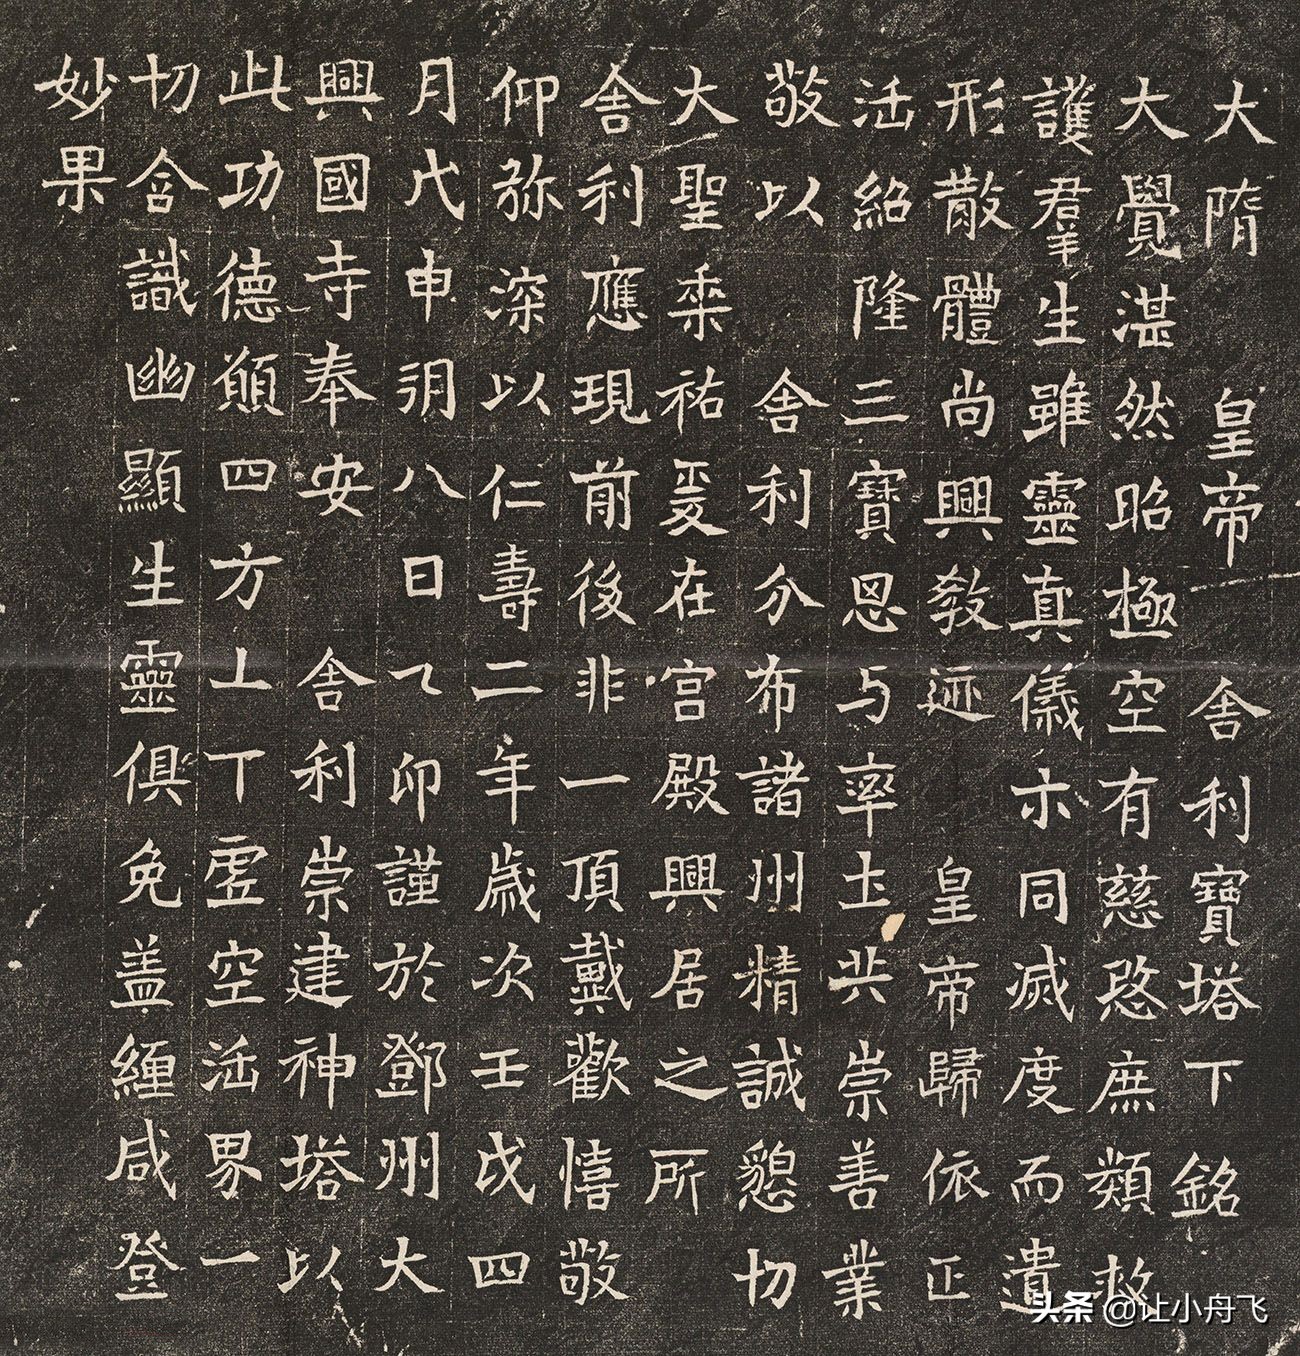 大隋皇帝舍利寶塔下銘
大覺湛然昭極空有慈愍庶類救
護羣生雖靈真儀亦同滅度而遺
形散體尚興教迹皇帝歸依正
法紹隆三寶思与率土共崇善業
敬以舍利分布諸州精誠懇切
大聖垂祐爰在宮殿興居之所
舍利應現前後非一頂戴歡憘敬
仰弥深以仁壽二年歲次壬戌四
月戊申朔八日乙卯謹於鄧州大
興國寺奉安舍利崇建神塔以
此功德願四方上下虛空法界一
切含識幽顯生靈俱免盖纏咸登
妙果
头条 @让小舟飞